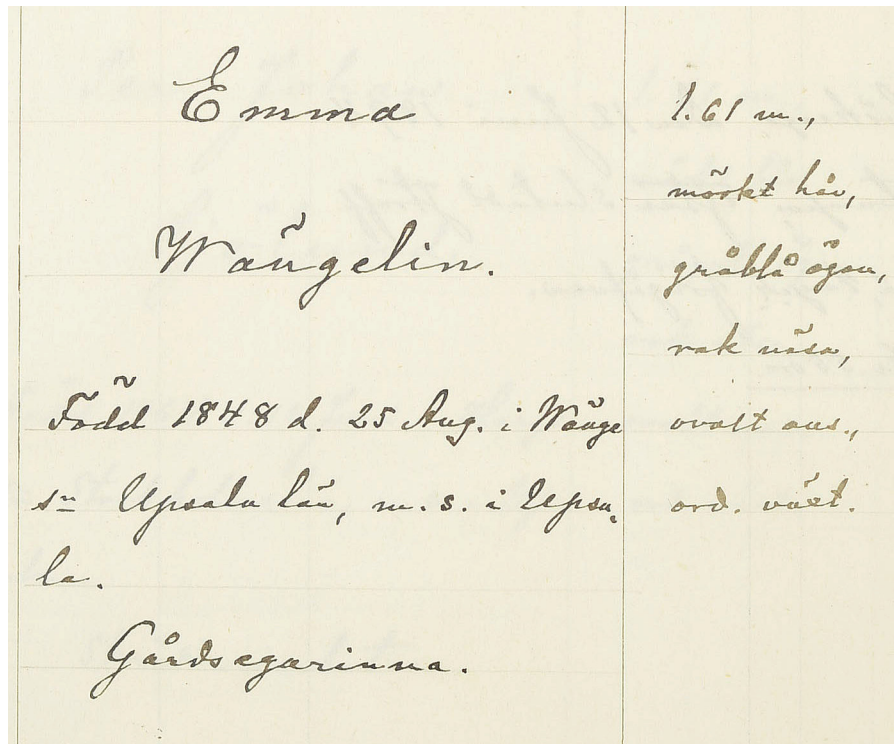 Emma
Wängelin.
Född 1848 d. 25 Aug. i Wänge
sn Upsala län, m. s. i Upsa-
la.
Gårdsegarinna.
1.61 m.,
mörkt hår,
gråblå ögon,
rak näsa,
ovalt ans.,
ord. växt.